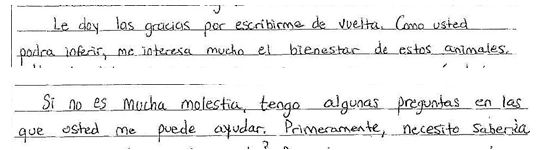 Le doy las gracias por escribirme de vuelta. Como usted
podra inferir, me interesa mucho el bienestar de estos animales.
Si no es mucha molestia, tengo algunas preguntas en las
que usted me puede ayudar. Primeramente, necesito saberia